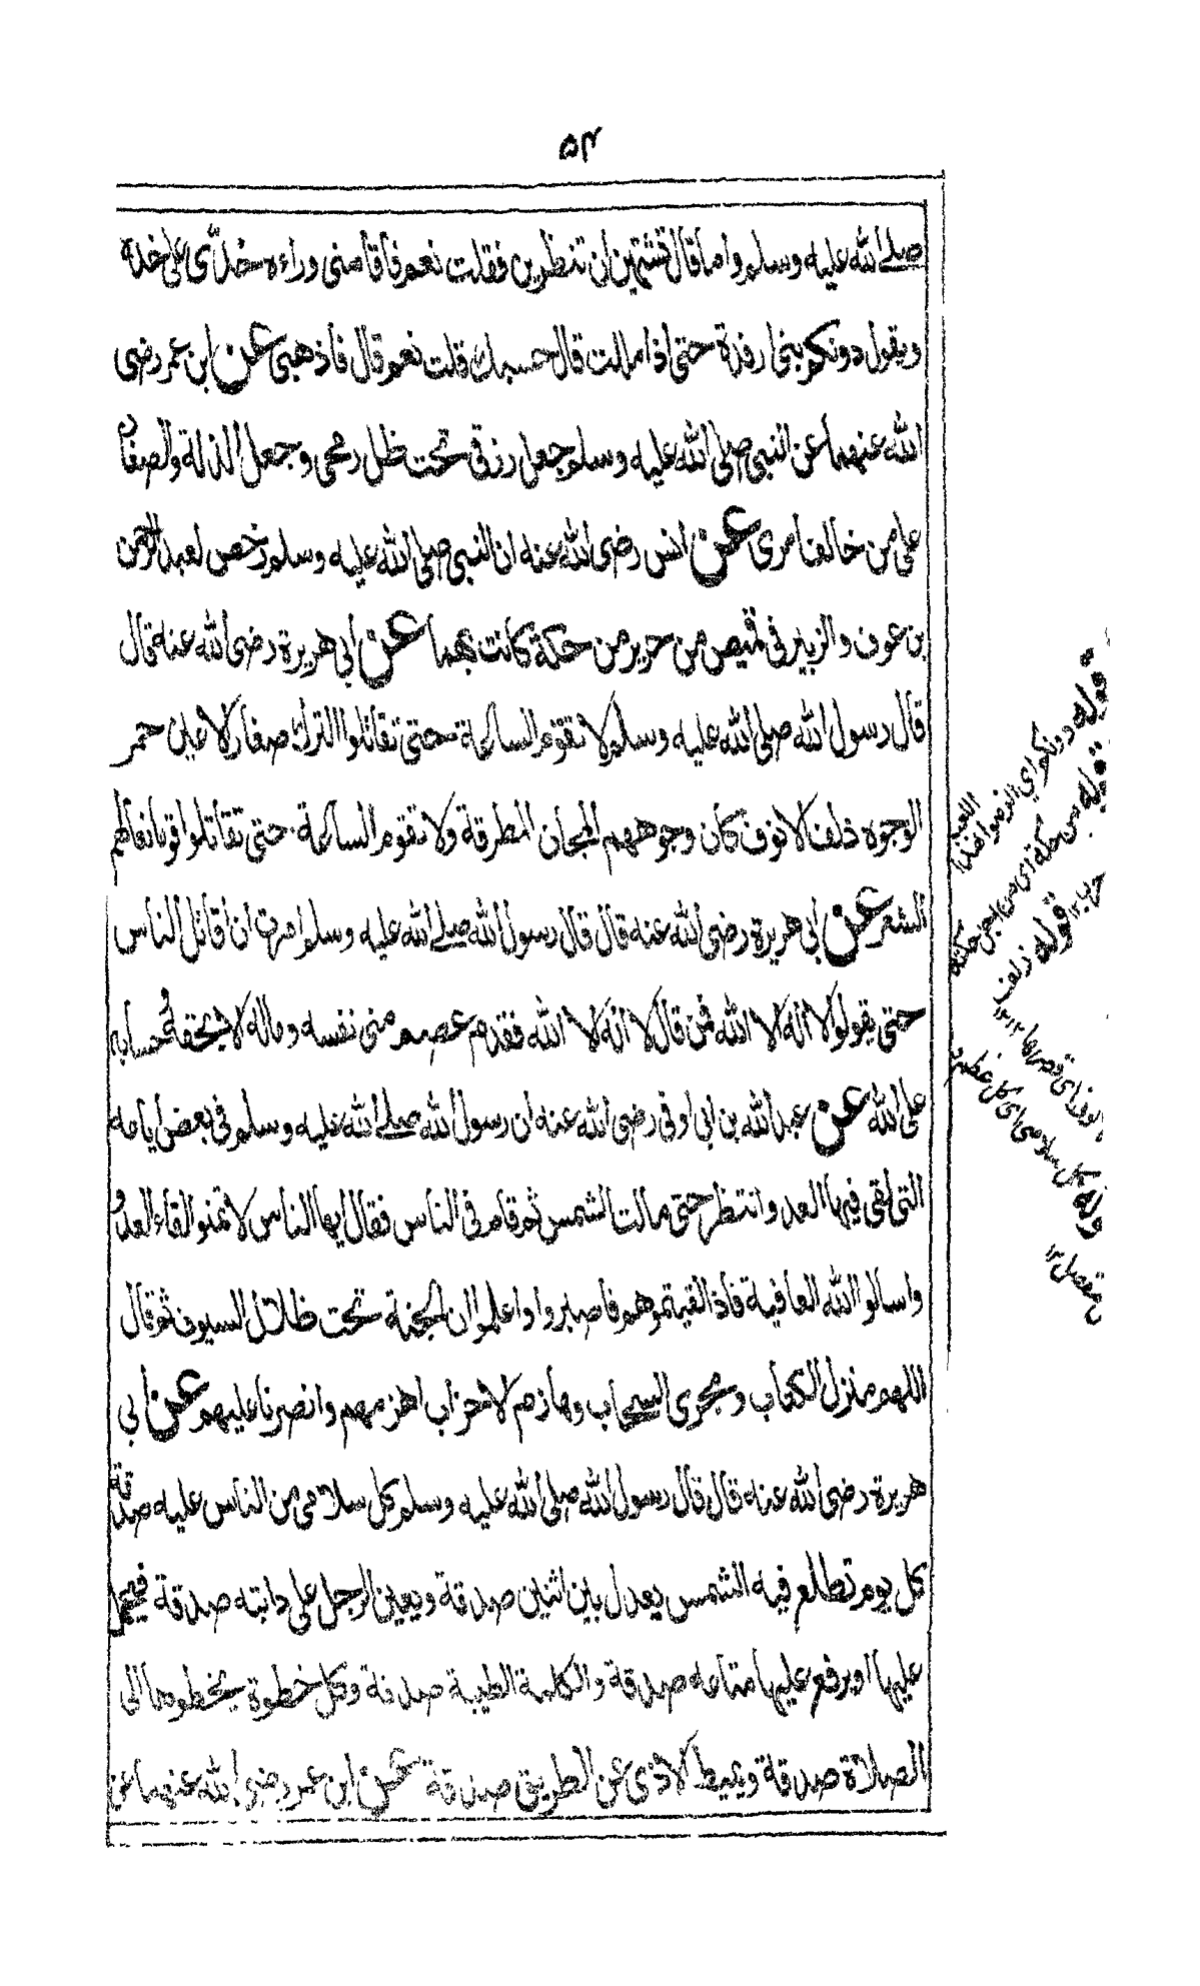 ۵۴
صلے الله عليه وسلم واما قال تشتهين ان تنظرين فقلت نعم فاقامنى وراءه خدّى على خده
ويقول دونكم بنى ارفدة حتى اذا مللت قال حسبك قلت نعم قال فاذهبى عن ابن عمر رضى
الله عنهما عن النبى صلى الله عليه وسلم جعل رزقى تحت ظل رمحى وجعل الذلة والصغار
على من خالف امرى عن انس رضى الله عنه ان النبى صلى الله عليه وسلم رخص لعبد الرحمن
بن عوف والزبير فى قميص من حرير من حكة كانت بهما عن ابى هريرة رضى الله عنه قال
قال رسول الله صلى الله عليه وسلم لا تقوم الساعة حتى تقاتلوا الترك صغار الاعين حمر
الوجوه ذلف الانوف كان وجوههم المجان المطرقة ولا تقوم الساعة حتى تقاتلوا قوما نعالهم
الشعر عن ابى هريرة رضى الله عنه قال قال رسول الله صلے الله عليه وسلم امرت ان اقاتل الناس
حتى يقولوا لا اله الا الله فمن قال لا اله الا الله فقد عصم منى نفسه وماله الا بحقه وحسابه
على الله عن عبد الله بن ابى اوفى رضى الله عنه ان رسول الله صلے الله عليه وسلم فى بعض ايامه
التى لقى فيها العدو انتظر حتى مالت الشمس ثم قام فى الناس فقال ايها الناس لا تمنوا لقاء العدو
واسالوا الله العافية فاذا لقيتموهم فاصبروا واعلموا ان الجنة تحت ظلال السيوف ثم قال
اللهم منزل الكتاب ومجرى السحاب وهازم الاحزاب اهزمهم وانصرنا عليهم عن ابى
هريرة رضى الله عنه قال قال رسول الله صلى الله عليه وسلم كل سلامى من الناس عليه صدقة
كل يوم تطلع فيه الشمس يعدل بين اثنين صدقة ويعين الرجل على دابته صدقة فيحمل
عليها او يرفع عليها متاعه صدقة والكلمة الطيبة صدقة وكل خطوة يخطوها الى
الصلاة صدقة ويميط الاذى عن الطريق صدقة عن ابن عمر رضى الله عنهما عن
قوله دونكم اى الزموا هذا
اللعب
قوله من حكة اى من اجل حكة
قوله ذلف
الانوف اى قصرها ١٢
قوله كل سلامى اى كل عظم
مفصل ١٢